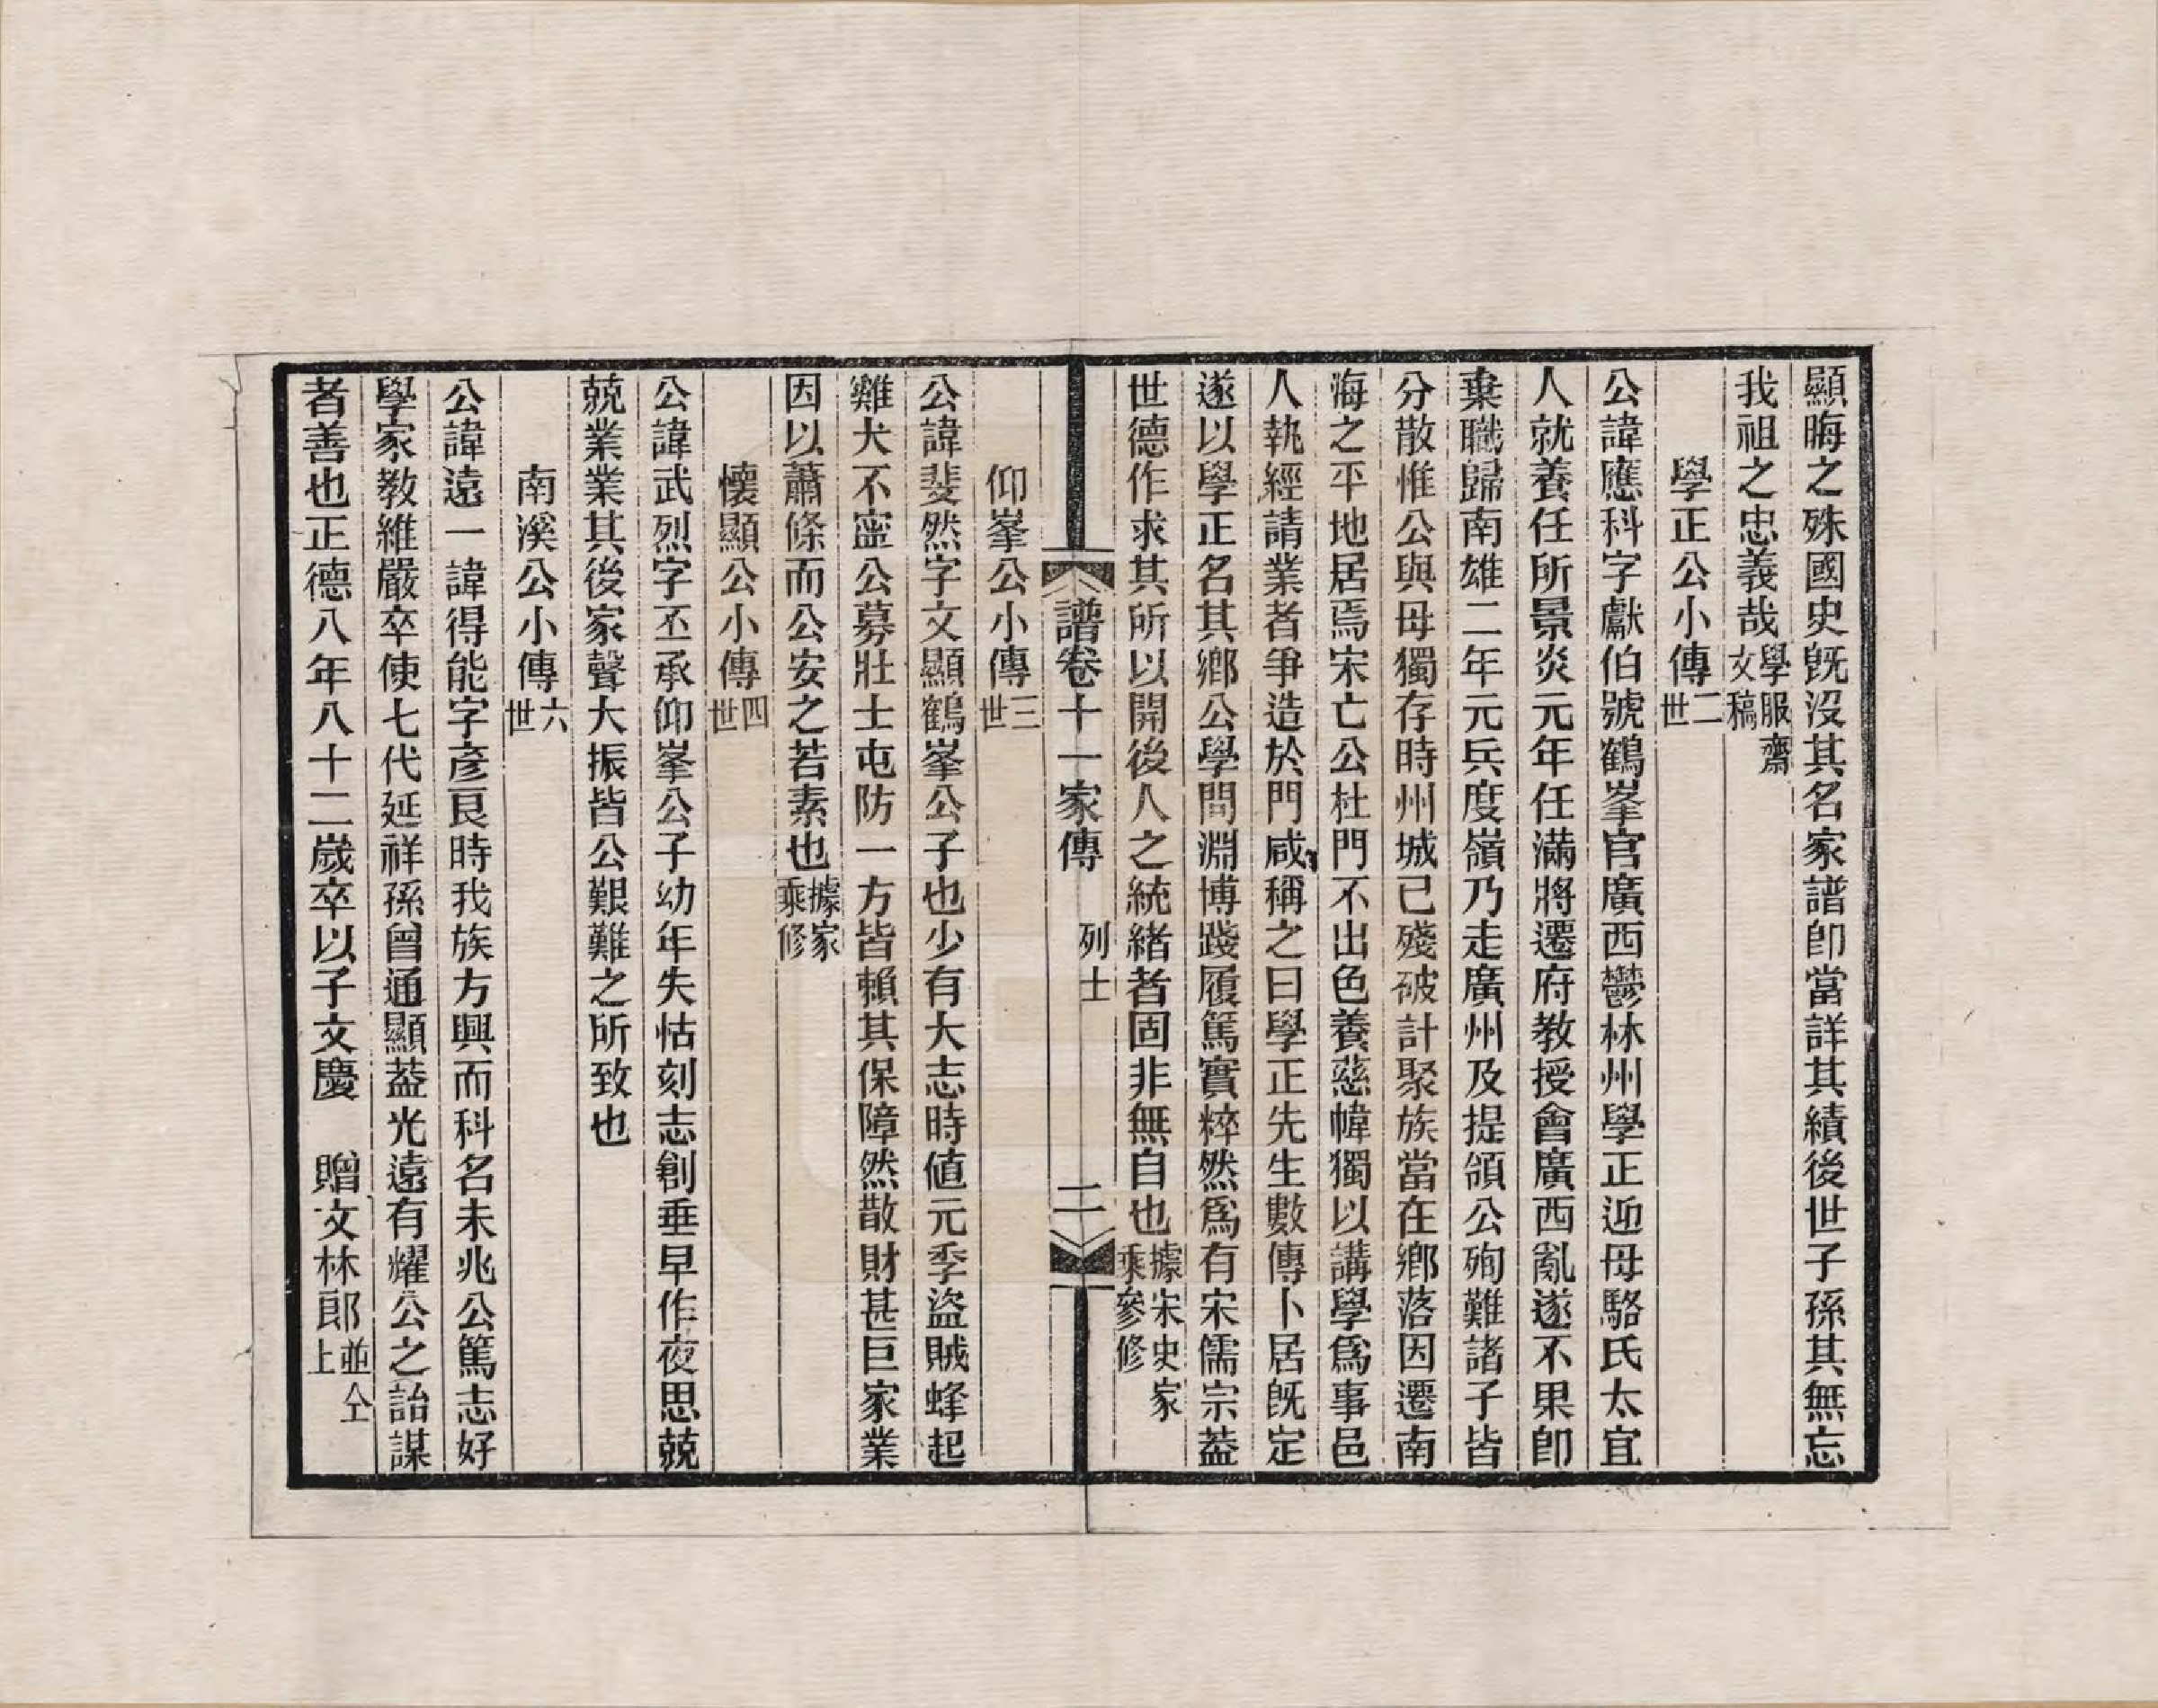 顯晦之殊國史旣沒其名家譜卽當詳其績後世子孫其無忘
我祖之忠義哉學服齋文稿
學正公小傳二世
公諱應科字獻伯號鶴峯官廣西鬱林州學正迎母駱氏太宜
人就養任所景炎元年任滿將遷府教授會廣西亂遂不果卽
棄職歸南雄二年元兵度嶺乃走廣州及提頒公殉難諸子皆
分散惟公與母獨存時州城已殘破計聚族當在鄉落因遷南
海之平地居焉宋亡公杜門不出色養慈幃獨以講學爲事邑
人執經請業者爭造於門咸稱之曰學正先生數傳卜居旣定
遂以學正名其鄉公學問淵博踐履篤實粹然爲有宋儒宗蓋
世德作求其所以開後人之統緒者固非無自也據宋史家乘參修
譜卷十一家傳 列士 二
仰峯公小傳三世
公諱斐然字文顯鶴峯公子也少有大志時値元季盜賊蜂起
雞犬不寍公募壯士屯防一方皆賴其保障然散財甚巨家業
因以蕭條而公安之若素也據家乘修
懷顯公小傳四世
公諱武烈字丕承仰峯公子幼年失怙刻志創垂早作夜思兢
兢業業其後家聲大振皆公艱難之所致也
南溪公小傳六世
公諱遠一諱得能字彦良時我族方興而科名未兆公篤志好
學家教維嚴卒使七代延祥孫曾通顯蓋光遠有耀公之詒謀
者善也正德八年八十二歲卒以子文慶 贈文林郎並仝上